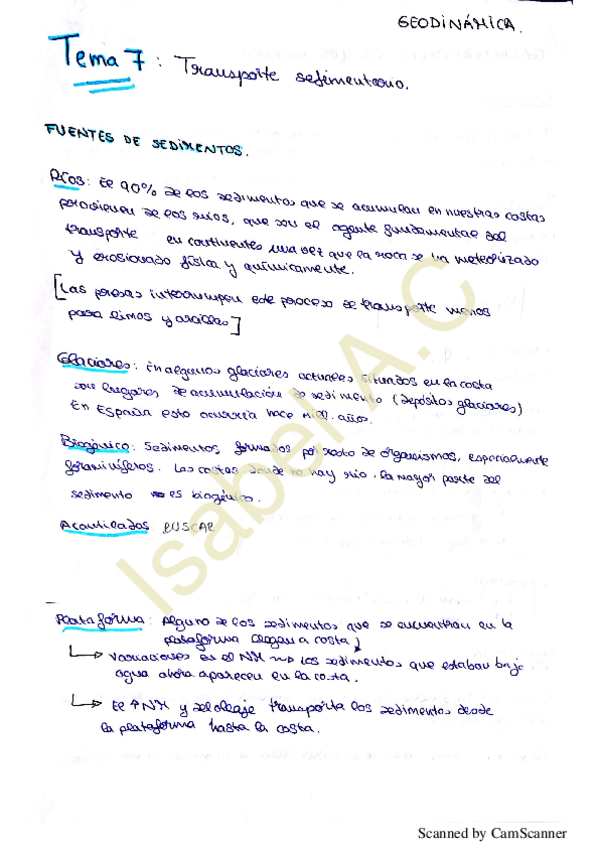 GEODINÁMICA.
Tema 7: Transporte sedimentario.
FUENTES DE SEDIMENTOS.
Ríos: El 90% de los sedimentos que se acumulan en nuestras costas
provienen de los ríos, que son el agente fundamental del
transporte en continentes una vez que la roca se ha meteorizado
y erosionado física y químicamente.
[Las presas interrumpen este proceso de transporte menos
para limos y arcillas]
Glaciares: En algunos glaciares actuales situados en la costa
son lugares de acumulación de sedimento (depósitos glaciares)
En España esto ocurría hace mill. años.
Biogénico: Sedimentos formados por resto de organismos, especialmente
foraminíferos. Las costas donde no hay río. la mayor parte del
sedimento es biogénico.
Acantilados BUSCAR
Plataforma: Alguno de los sedimentos que se encuentran en la
plataforma llegan a costa
→ Variaciones en el NM → los sedimentos que estaban bajo
agua ahora aparecen en la costa.
→ El ↑NM y el oleaje transporta los sedimentos desde
la plataforma hasta la costa.
Isabel A.C
Scanned by CamScanner